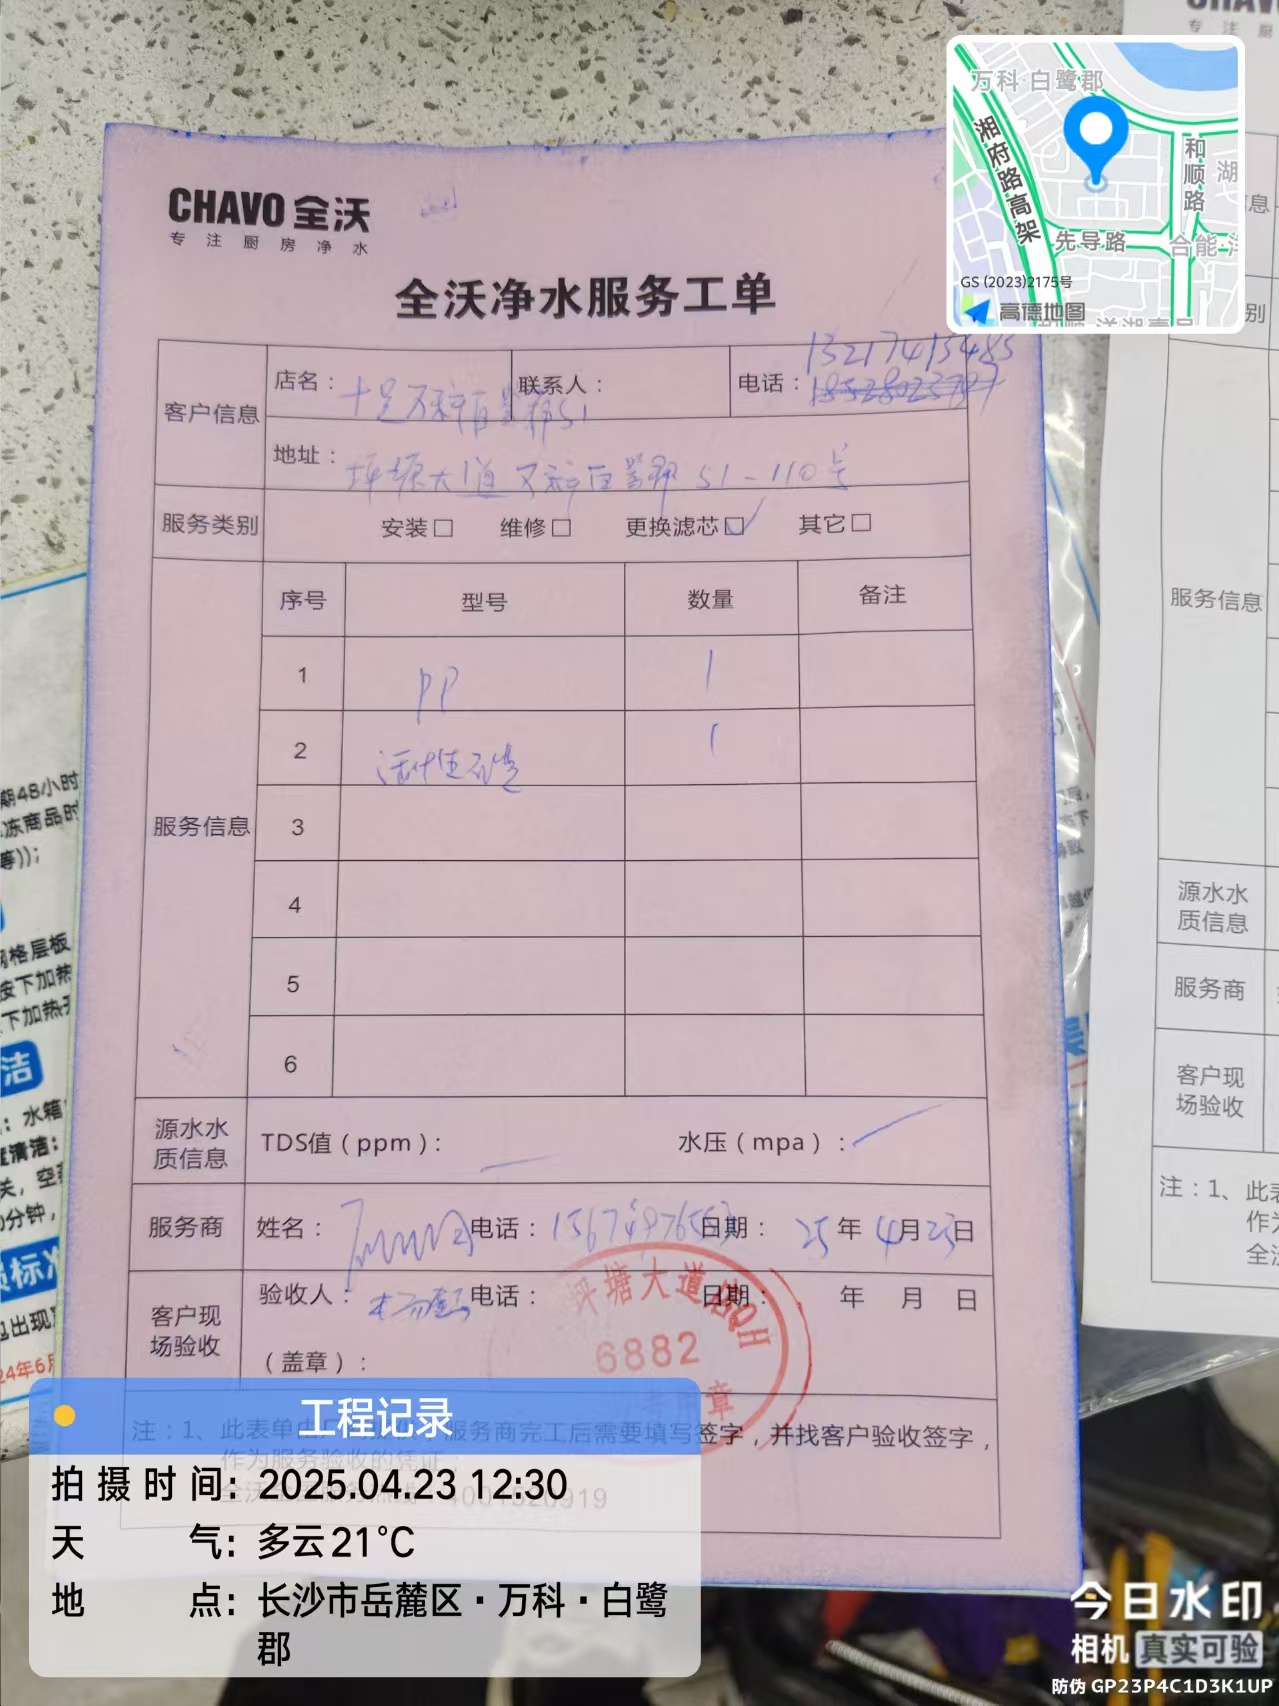 CHAVO 全沃
专 注 厨 房 净 水
全沃净水服务工单
客户信息
店名：
联系人：
电话：
13217415485
地址：坪塘大道万科白鹭郡51-110号
服务类别 安装□ 维修□ 更换滤芯☑ 其它□
服务信息
序号 型号 数量 备注
1 PP 1
2 1
3
4
5
6
源水水质信息 TDS值（ppm）： 水压（mpa）：
服务商 姓名： 电话： 日期：25年4月23日
客户现场验收 验收人： 电话： 日期： 年 月 日
（盖章）：
坪塘大道
6882
章
注：1、此表单由 服务商完工后需要填写签字，并找客户验收签字，
作为服务验收的凭证；
工程记录
拍摄时间：2025.04.23 12:30
天 气：多云21℃
地 点：长沙市岳麓区·万科·白鹭
郡
万科·白鹭郡
湘府路高架
和顺路
先导路
合能·洋
GS (2023)2175号
高德地图
服务信息
源水水
质信息
服务商
客户现
场验收
注：1、此表
作为
全沃
期48小时
冻商品时
等));
网格层板
按下加热
下加热
洁
：水箱
清洁：
分钟，
损标准
出现
24年6月
今日水印
相机 真实可验
防伪 GP23P4C1D3K1UP